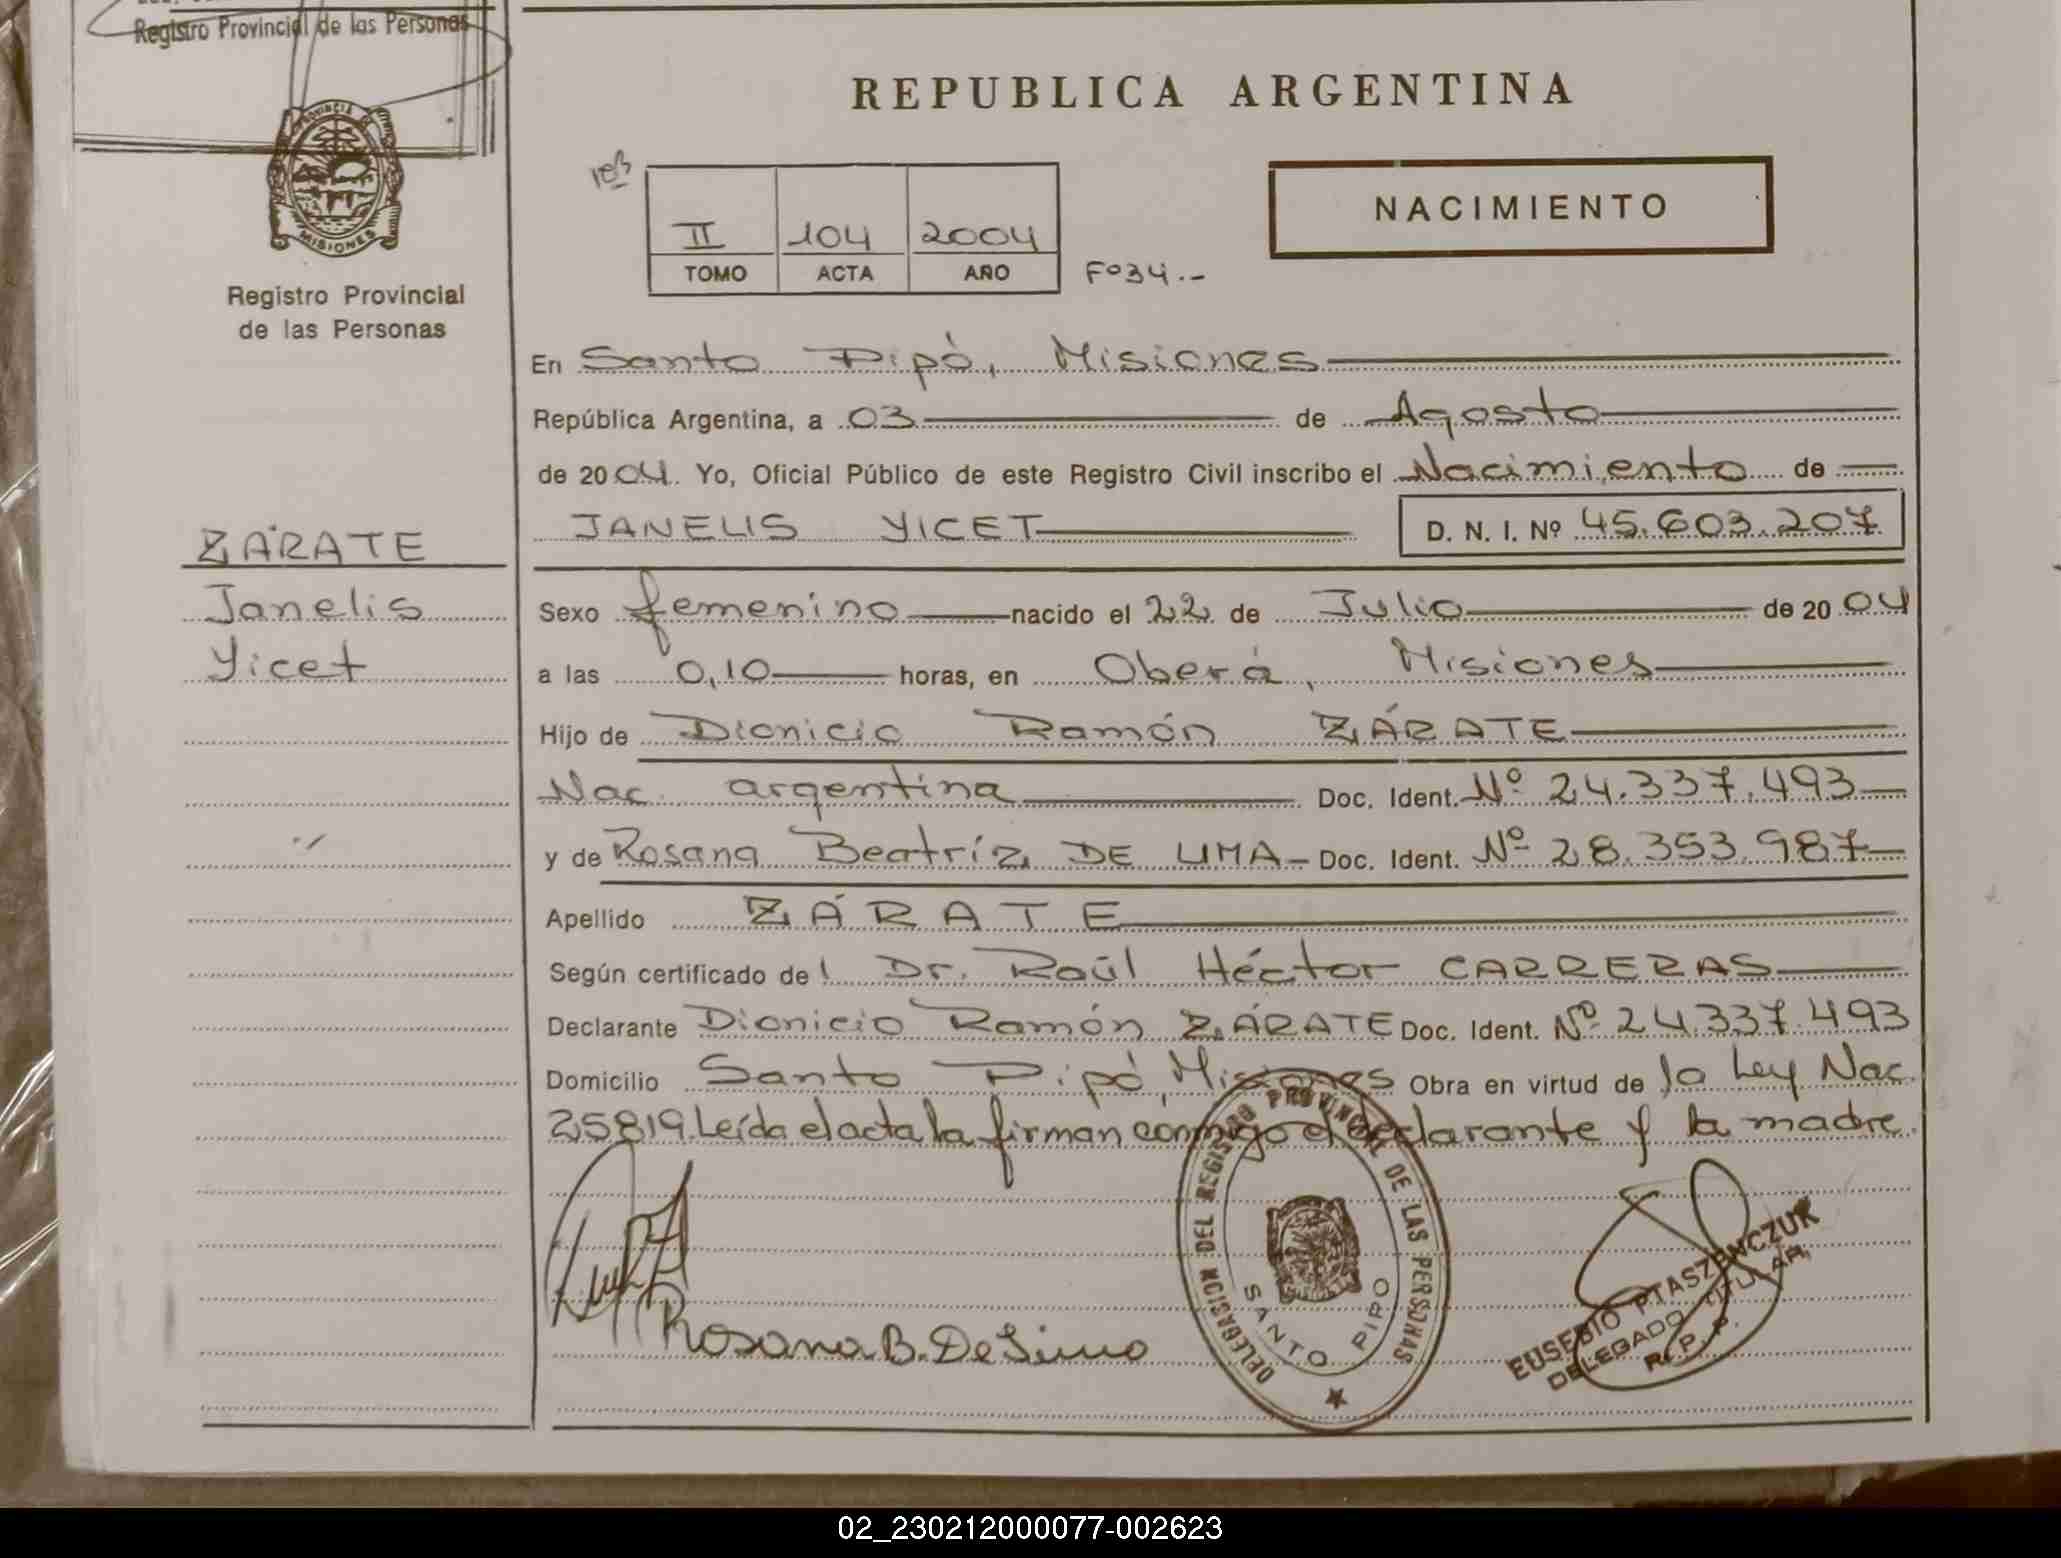 Registro Provincial de las Personas
PROVINCIA DE
MISIONES
Registro Provincial
de las Personas
ZÁRATE
Janelis
Yicet
REPUBLICA ARGENTINA
II 104 2004
TOMO ACTA AÑO
Fº34.-
NACIMIENTO
En Santo Pipó, Misiones
República Argentina, a 03 de Agosto
de 2004. Yo, Oficial Público de este Registro Civil inscribo el Nacimiento de
JANELIS YICET D. N. I. Nº 45.603.207
Sexo femenino nacido el 22 de Julio de 2004
a las 0,10 horas, en Oberá, Misiones
Hijo de Dionicio Ramón ZÁRATE
Nac. argentina Doc. Ident. Nº 24.337.493
y de Rosana Beatríz DE LIMA Doc. Ident. Nº 28.353.987
Apellido ZÁRATE
Según certificado de l Dr. Raúl Héctor CARRERAS
Declarante Dionicio Ramón ZÁRATE Doc. Ident. Nº 24.337.493
Domicilio Santo Pipó, Misiones Obra en virtud de la Ley Nac.
25819. Leída el acta la firman conmigo el declarante y la madre.
Rosana B. De Lima
DELEGACION DEL REGISTRO PROVINCIAL DE LAS PERSONAS
SANTO PIPO
EUSEBIO PTASZENCZUK
DELEGADO TITULAR
R. P. P.
02_230212000077-002623